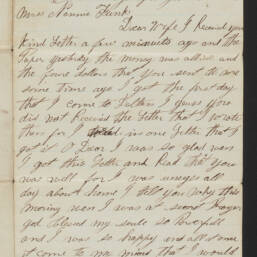 Mrs Nannie Funk
Dear Wife I Received your
Kind Letter a few minuets ago and the
Paper yesterday the money was all and
the four dollars that you sent to me
some time ago I got the first day
that I come to I guess you
did not Received the Letter that I wrote
then for I in one Letter that I
got it O Dear I was so glad when
I got this Letter and Read that you
was well for I was uneasy all
day about home I tell you why this
morning when I was at secret Prayer
god blessed my soul so Powerfull
and I was so happy and all at once
it come to my mind that I would